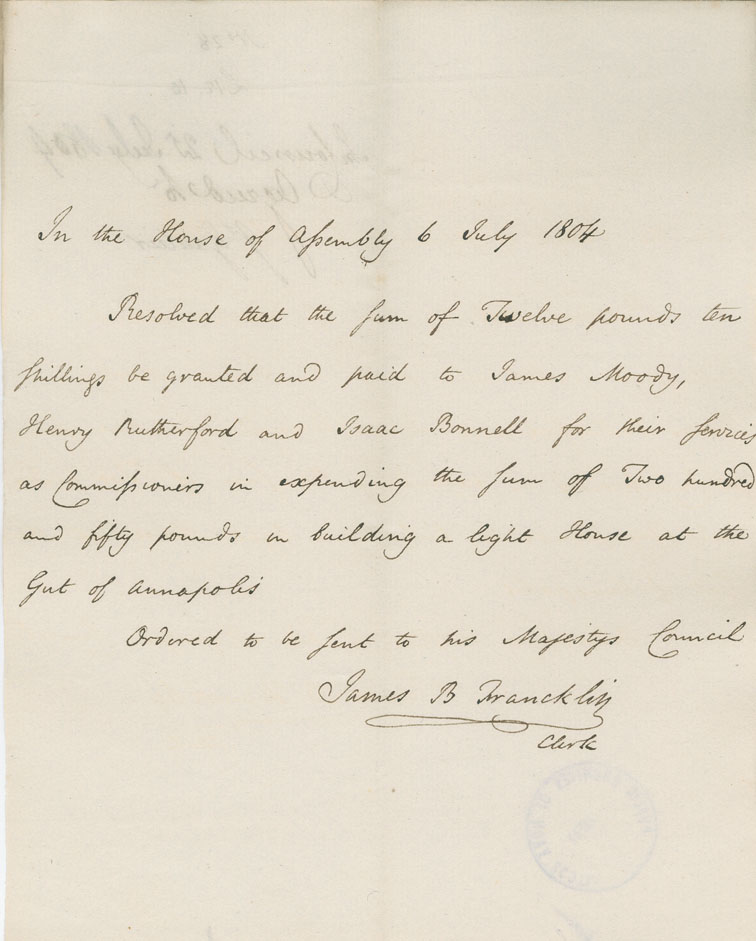 In the House of Assembly 6 July 1804
Resolved that the sum of Twelve pounds ten
shillings be granted and paid to James Moody,
Henry Rutherford and Isaac Bonnell for their services
as Commissioners in expending the sum of Two hundred
and fifty pounds in building a light House at the
Gut of Annapolis
Ordered to be sent to his Majestys Council
James B Francklin
Clerk